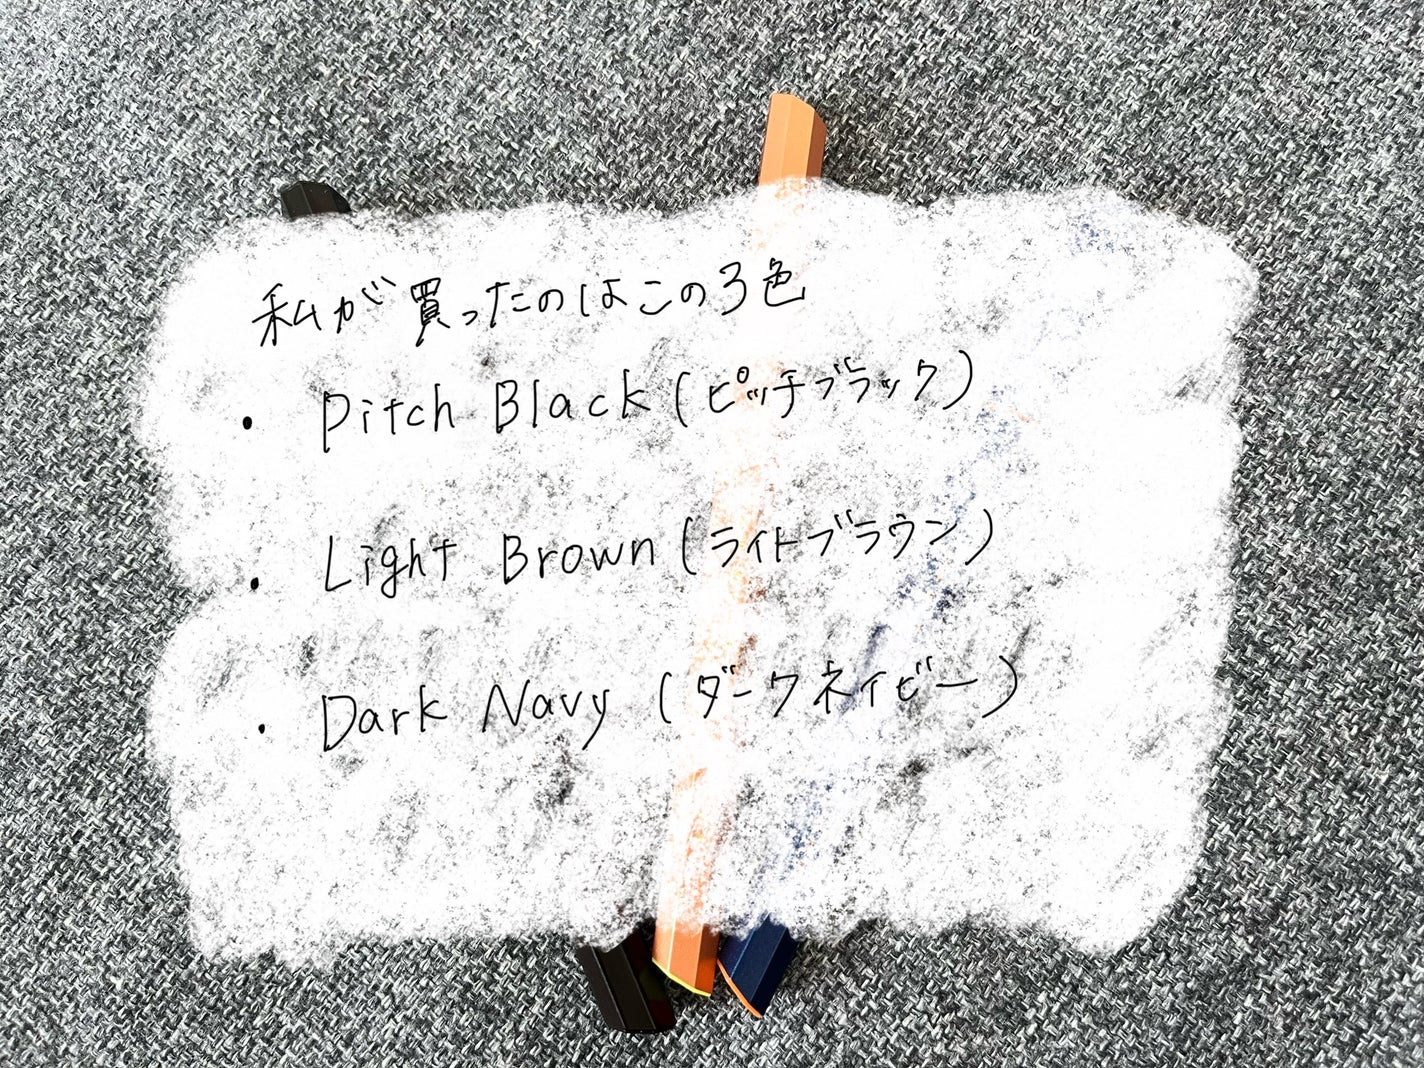 私が買ったのはこの3色
・ Pitch Black (ピッチブラック)
・ Light Brown (ライトブラウン)
・ Dark Navy (ダークネイビー)